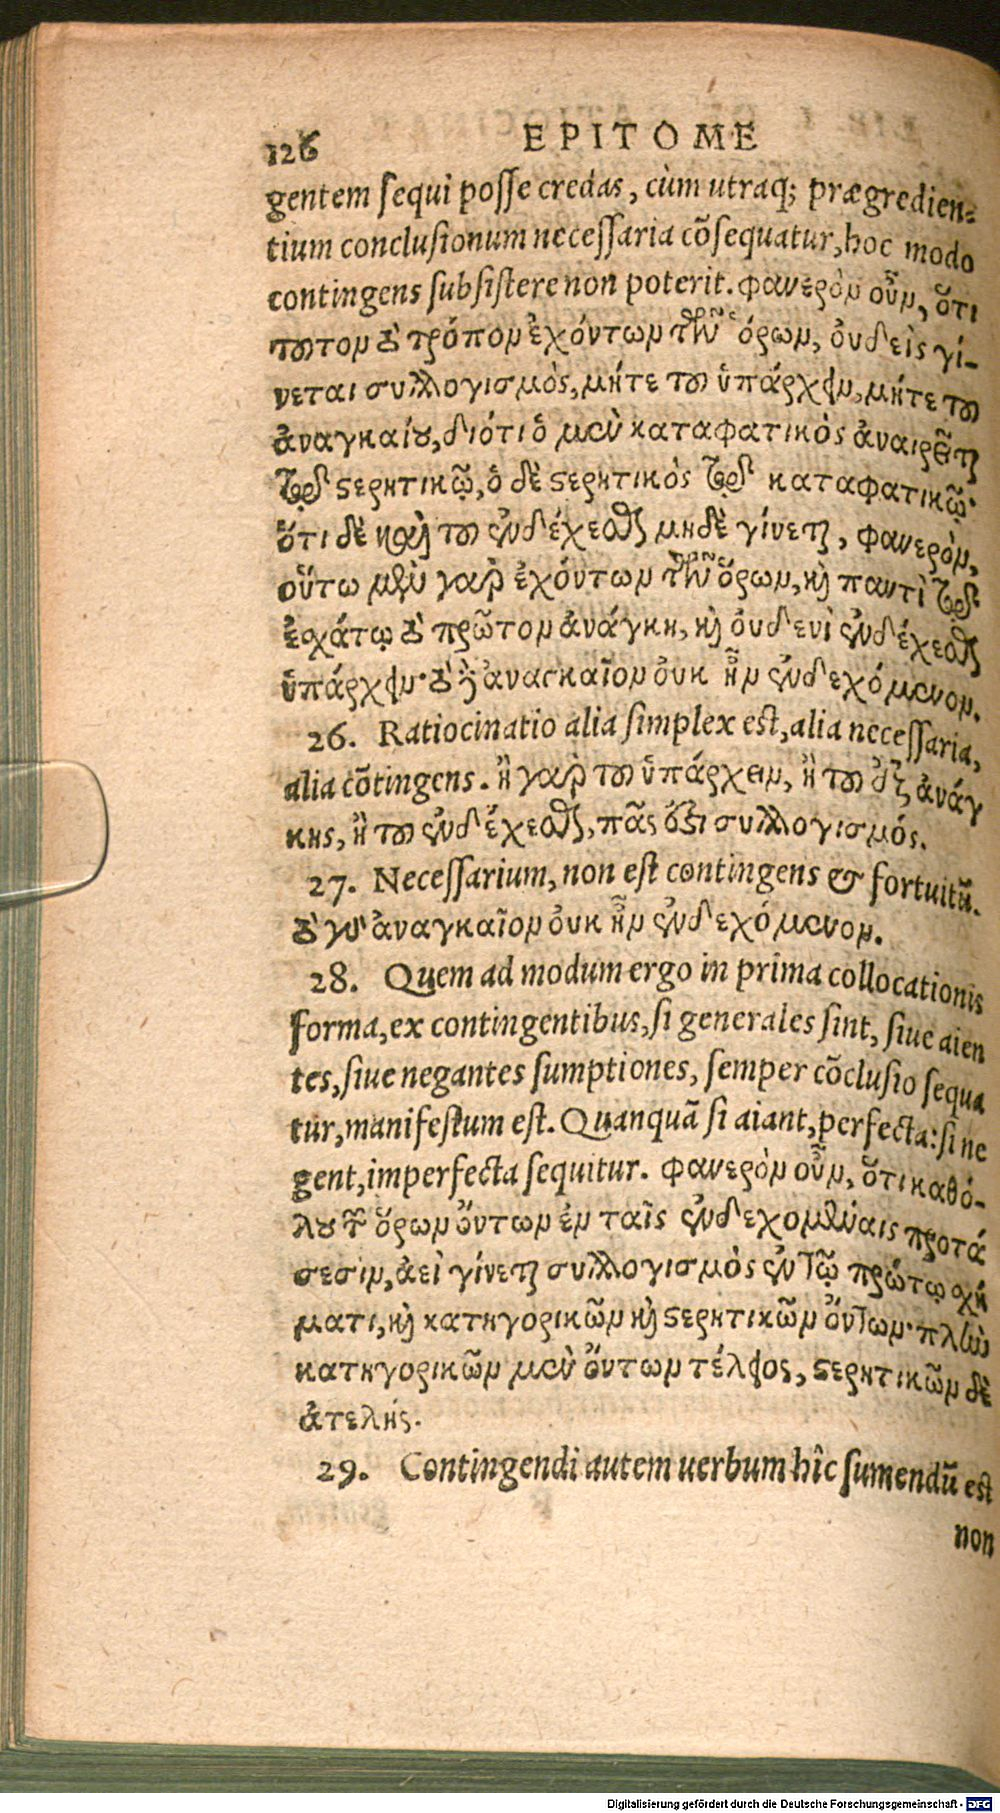 126 EPITOME
gentem sequi posse credas, cùm utraq; prægredien-
tium conclusionum necessaria cõsequatur, hoc modo
contingens subsistere non poterit. φανερὸν οὖν, ὅτι
τοῦτον τὸν τρόπον ἐχόντων τῶν ὅρων, οὐδεὶς γί-
νεται συλλογισμὸς, μήτε τοῦ ὑπάρχειν, μήτε τοῦ
ἀναγκαίου, διότι ὁ μὲν καταφατικὸς ἀναιρεῖται
τῷ στερητικῷ, ὁ δὲ στερητικὸς τῷ καταφατικῷ·
ὅτι δὲ καὶ τοῦ ἐνδέχεσθαι μηδὲ γίνεται, φανερὸν,
οὕτω μὲν γὰρ ἐχόντων τῶν ὅρων, καὶ παντὶ τῷ
ἐσχάτῳ τὸ πρῶτον ἀνάγκη, καὶ οὐδενὶ ἐνδέχεσθαι
ὑπάρχειν· τὸ γὰρ ἀναγκαῖον οὐκ ἦν ἐνδεχόμενον.
26. Ratiocinatio alia simplex est, alia necessaria,
alia cõtingens. ἢ γὰρ τοῦ ὑπάρχειν, ἢ τοῦ ἐξ ἀνάγ
κης, ἢ τοῦ ἐνδέχεσθαι, πᾶς ἐστι συλλογισμός.
27. Necessarium, non est contingens & fortuitũ.
τὸ γὰρ ἀναγκαῖον οὐκ ἦν ἐνδεχόμενον.
28. Quem ad modum ergo in prima collocationis
forma, ex contingentibus, si generales sint, siue aien
tes, siue negantes sumptiones, semper cõclusio sequa
tur, manifestum est. Quanquã si aiant, perfecta: si ne
gent, imperfecta sequitur. φανερὸν οὖν, ὅτι καθό-
λου τῶν ὅρων ὄντων ἐν ταῖς ἐνδεχομέναις προτά
σεσιν, ἀεὶ γίνεται συλλογισμὸς ἐν τῷ πρώτῳ σχή
ματι, καὶ κατηγορικῶν καὶ στερητικῶν ὄντων· πλὴν
κατηγορικῶν μὲν ὄντων τέλειος, στερητικῶν δὲ
ἀτελής.
29. Contingendi autem uerbum hîc sumendũ est
non
Digitalisierung gefördert durch die Deutsche Forschungsgemeinschaft - DFG